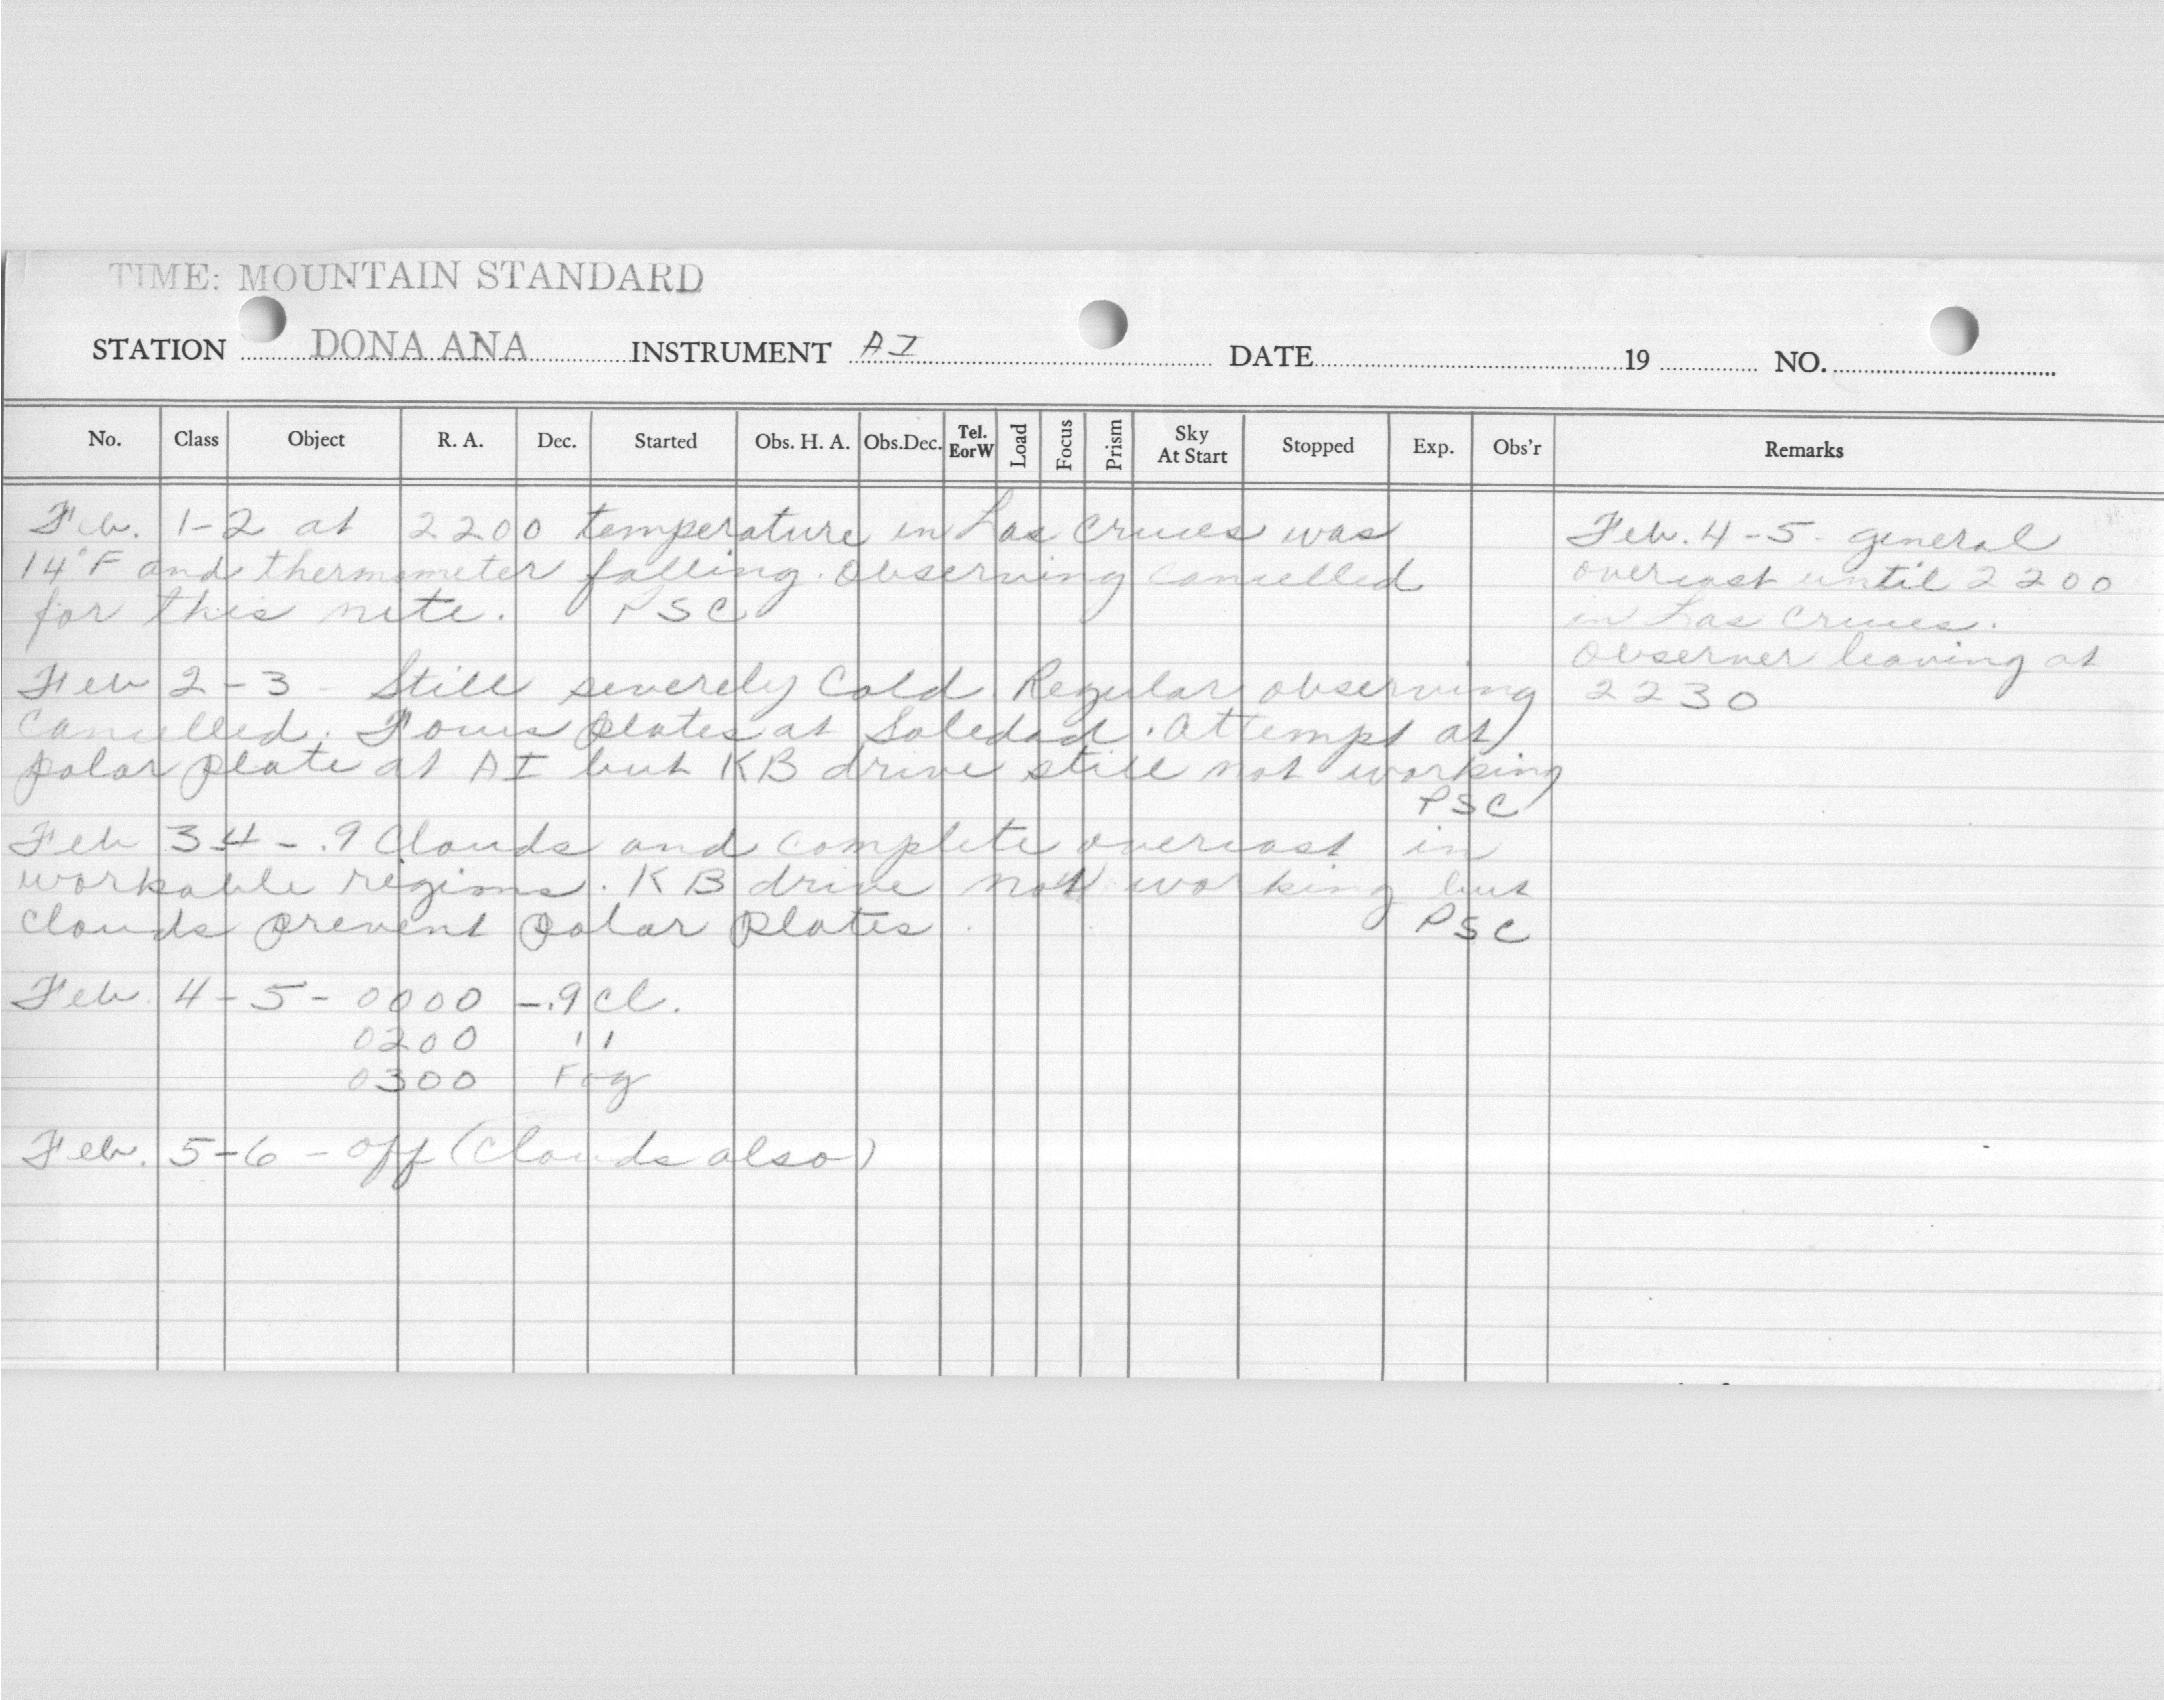 TIME: MOUNTAIN STANDARD
STATION DONA ANA INSTRUMENT AI DATE 19 NO.
No. Class Object R. A. Dec. Started Obs. H. A. Obs.Dec. Tel. EorW Load Focus Prism Sky At Start Stopped Exp. Obs'r Remarks
Feb. 1-2 at 2200 temperature in Las Cruces was
14°F and thermometer falling. Observing cancelled
for this nite. PSC
Feb 2-3 - Still severely cold. Regular observing
cancelled. Focus plates at Soledad. Attempt at
polar plate at AI but KB drive still not working
PSC
Feb 3-4 - .9 Clouds and complete overcast in
workable regions. KB drive working but
clouds prevent polar plates. PSC
Feb. 4-5- 0000 -.9 cl.
0200 ''
0300 Fog
Feb. 5-6 - off (clouds also)
Feb. 4-5- general
overcast until 2200
in Las Cruces.
Observer leaving at
2230